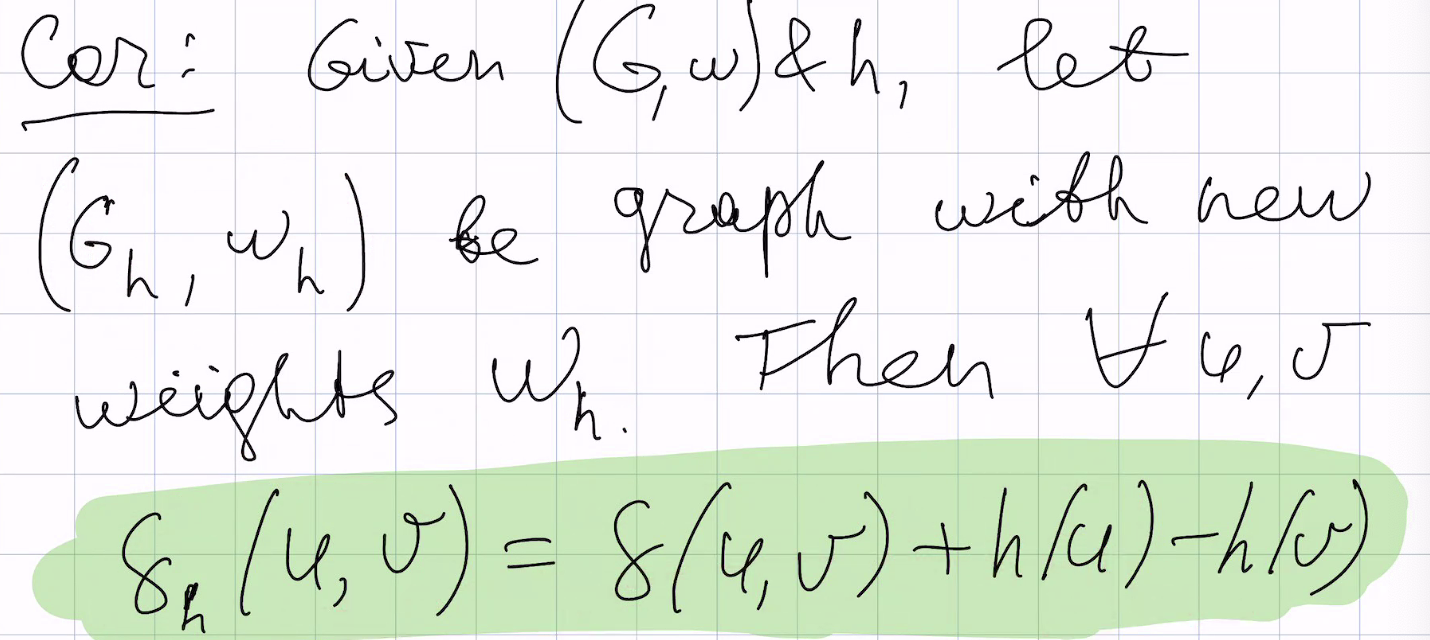 Cor: Given (G, w) & h, let
(G_h, w_h) be graph with new
weights w_h. Then ∀ u, v
δ_h (u, v) = δ(u, v) + h(u) - h(v)